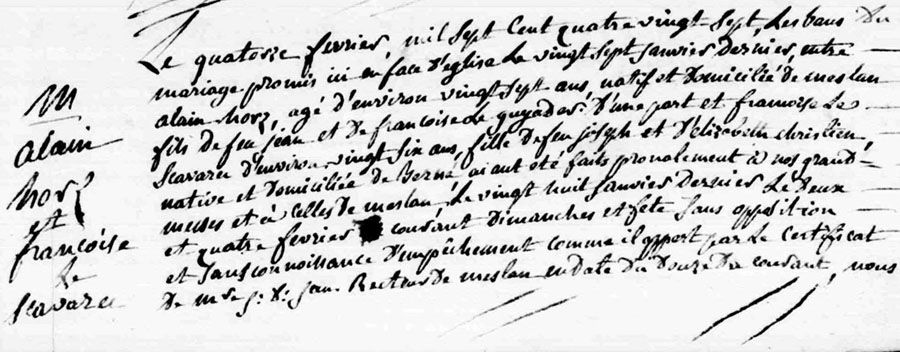 Le quatorze fevrier, mil Sept Cent quatre vingt Sept, Les bans Du
mariage promis ici en face D'eglise Le vingt Sept Janvier Dernier, entre
alain horz, agé d'environ vingt Sept ans, natif et Domicilié de meslan
fils de feu Jéan et De francoise Le guyader, D'une part et francoise Le
Scavarec D'environ vingt Six ans, fille De feu Joseph et D'elizabeth christien,
native et Domiciliée De Berné, aiant eté faits pronalement à nos grand-
messes et à Celles de meslan, Le vingt huit Janvier Dernier Le Deux
et quatre fevrier courant Dimanches et fête Sans opposition
et Sans connoissance D'empêchement comme il appert par Le Certificat
De mre Recteur De meslan en date Du Douze Du courant, nous
M
alain
horz
et
francoise
Le
scavarec